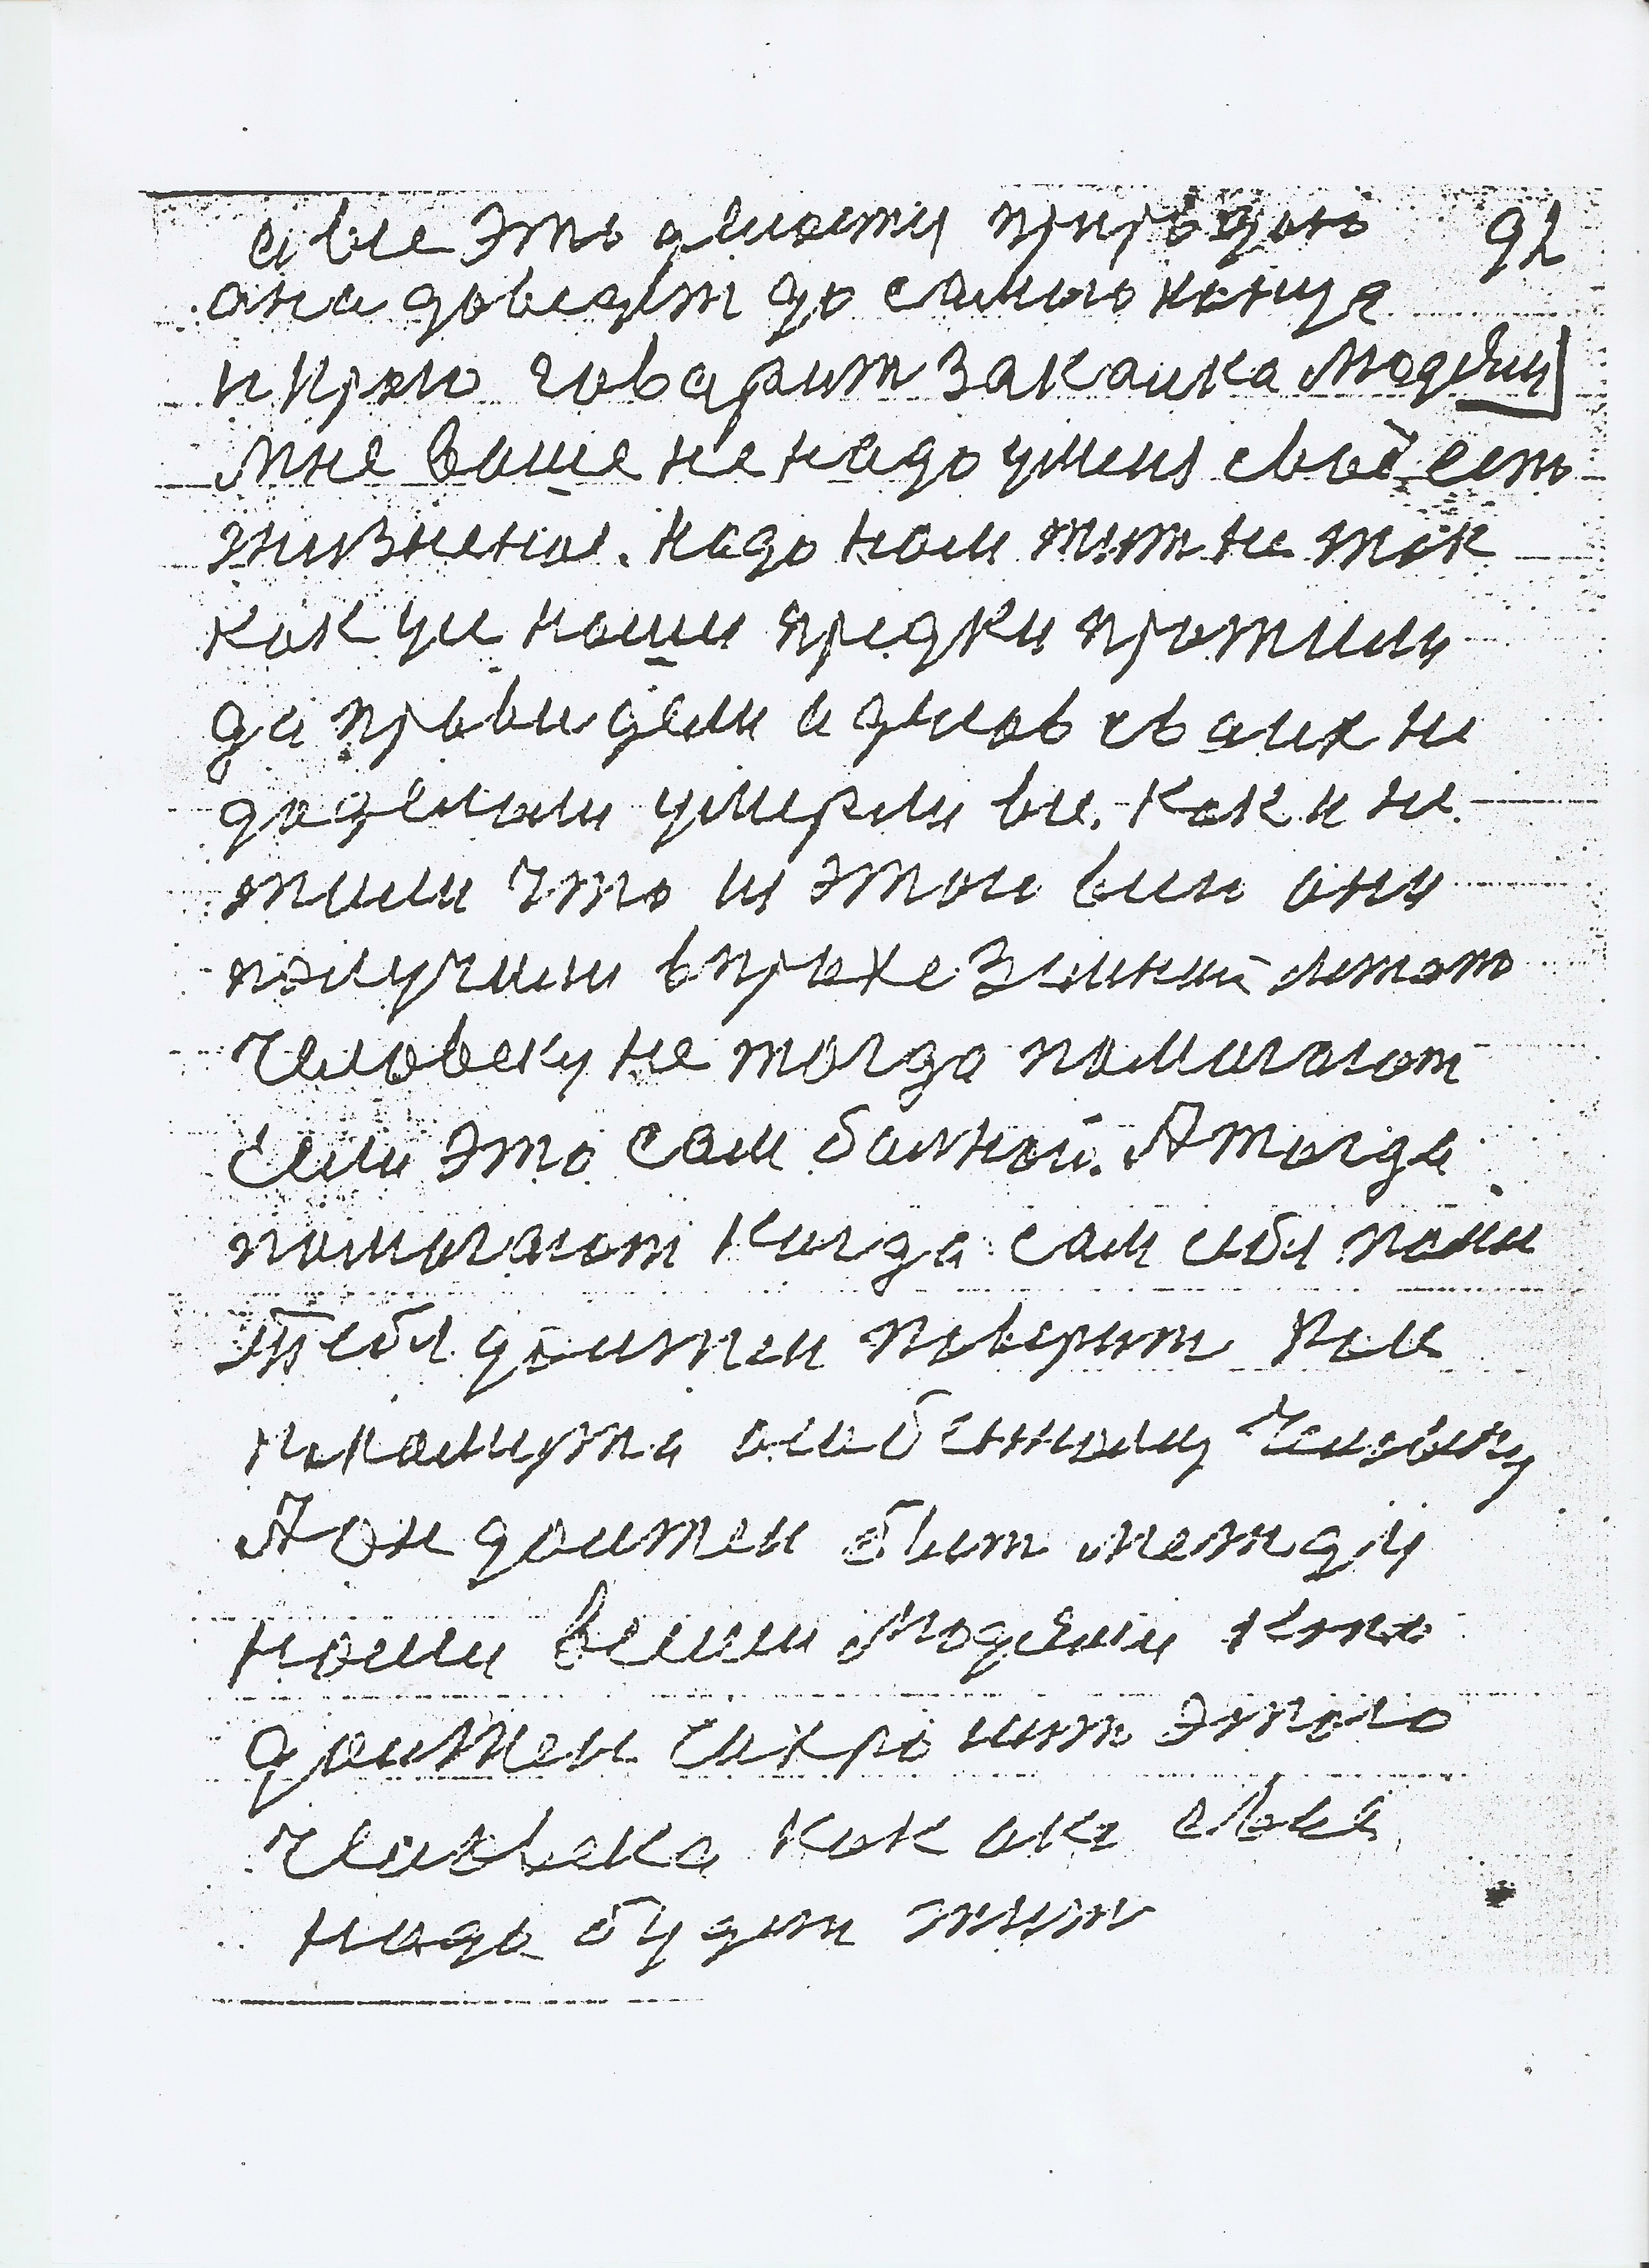 а все это делаетц природою 92
она доведет до самого конца
и прямо говарит закалка людям
мне ваше не надо умения своё есть
жизненое. Надо нам жит не так
как уже наши предки прожили
да провели делы а делов своих не
доделали умерли все. Как и не
жили что с этой вси они
получили впрохе Зимний летом
человеку не тогда помагают
если это сам больной. А тогда
помогают когда сам себе помо
жт себе должен поверит Как
никому та обижтному человеку
А он должен быт лет для
наши всеми людьми кто
должен сахронит этого
человека как око своё
надо будет жит